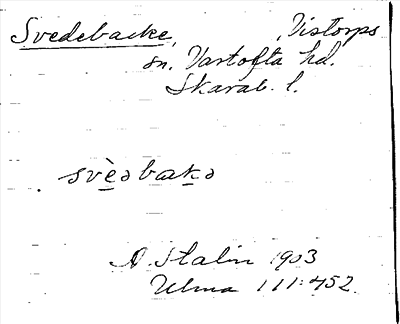 Svedebacke, Vistorps
sn. Vartofta hd.
Skarab. l.
svèəbakə
A. Stalin 1903
Ulma 111:452.